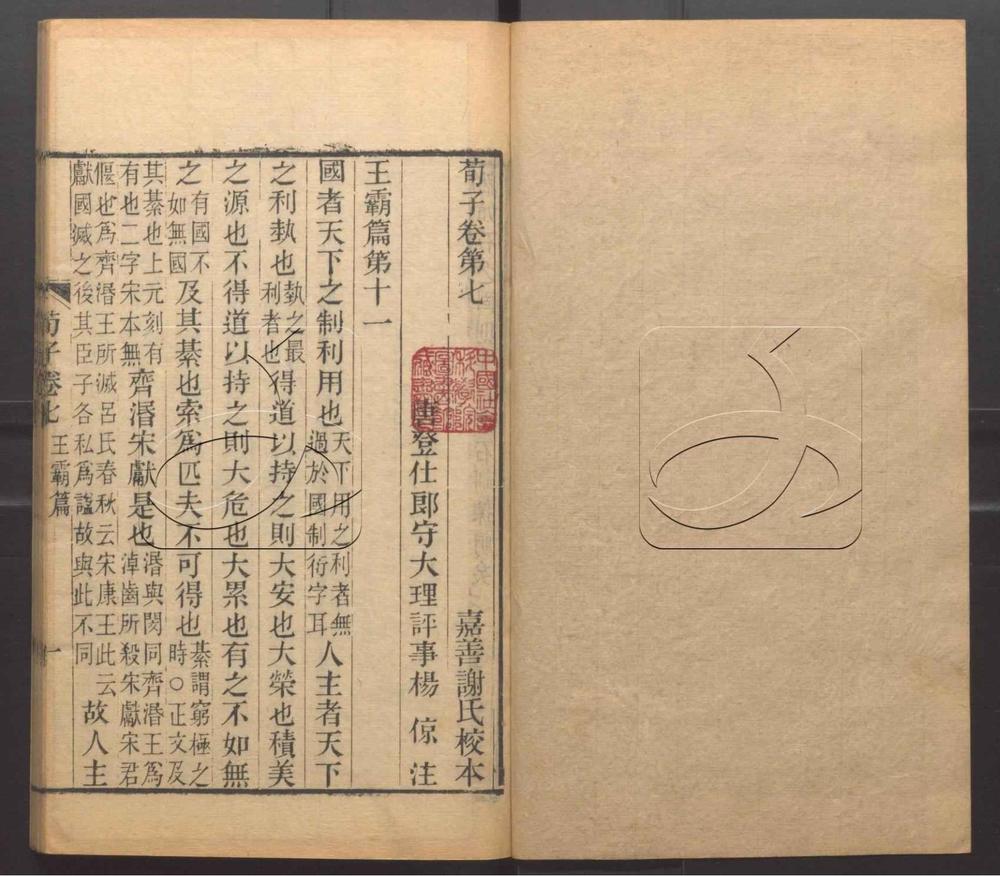 荀子卷第七 嘉善謝氏校本
書登仕郎守大理評事楊 倞 注
王霸篇第十一
國者天下之制利用也天下用之利者無過於國制衍字耳人主者天下
之利埶也埶之最利者也得道以持之則大安也大榮也積美
之源也不得道以持之則大危也大累也有之不如無
之有國不如無國及其綦也索爲匹夫不可得也綦謂窮極之時○正文及
其綦也上元刻有有也二字宋本無齊湣宋獻是也湣與閔同齊湣王爲淖齒所殺宋獻宋君
偃也爲齊湣王所滅呂氏春秋云宋康王此云獻國滅之後其臣子各私爲謚故與此不同故人主
荀子卷七 王霸篇 一